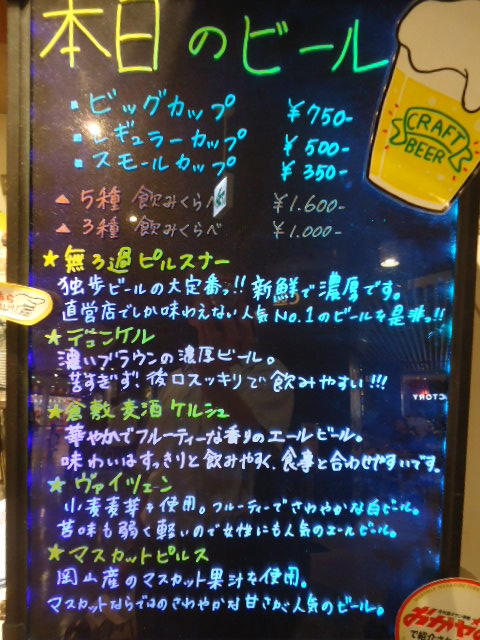 本日のビール
CRAFT
BEER
▪ビッグカップ ¥750-
▪レギュラーカップ ¥500-
▪スモールカップ ¥350-
▲5種 飲みくらべ ¥1.600-
▲3種 飲みくらべ ¥1.000-
★無ろ過ピルスナー
独歩ビールの大定番っ!! 新鮮で濃厚です。
直営店でしか味わえない人気No.1のビールを是非っ!!
★デュンケル
濃いブラウンの濃厚ビール。
苦すぎず、後口スッキリで飲みやすい!!!
★倉敷麦酒ケルシュ
華やかでフルーティーな香りのエールビール。
味わいはすっきりと飲みやすく、食事と合わせやすいです。
★ヴァイツェン
小麦麦芽を使用。フルーティーでさわやかな白ビール。
苦味も弱く軽いので女性にも人気のエールビール。
★マスカットピルス
岡山産のマスカット果汁を使用。
マスカットならではのさわやかな甘さが人気のビール。
CTORY
で紹介